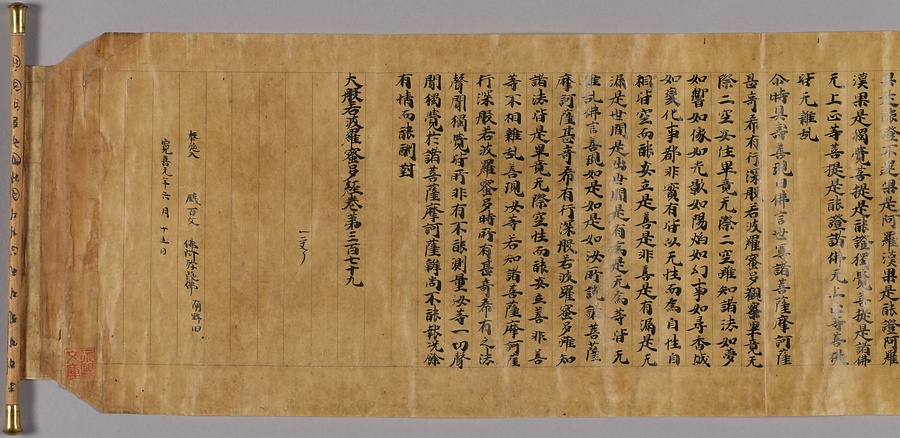 果是能證不還果是阿羅漢果是能證阿羅
漢果是獨覺菩提是能證獨覺菩提是諸佛
无上正等菩提是能證諸佛无上正等菩提
皆无雜乱
尒時具壽善現白佛言世尊諸菩薩摩訶薩
甚奇希有行深般若波羅蜜多觀察畢竟无
際二空安住畢竟无際二空雖知諸法如夢
如響如像如光影如陽焰如幻事如尋香城
如變化事都非實有皆以无性而為自性自
相皆空而能安立是善是非善是有漏是无
漏是世間是出世間是有為是无為等皆无
雜乱佛言善現如是如是如汝所說諸菩薩
摩訶薩甚奇希有行深般若波羅蜜多雖知
諸法皆是畢竟无際空性而能安立善非善
等不相雜乱善現汝等若知諸菩薩摩訶薩
行深般若波羅蜜多時所有甚奇希有之法
聲聞獨覺皆所非有不能測量汝等一切聲
聞獨覺於諸菩薩摩訶薩辯尚不能報況餘
有情而能酬對
一交了
大般若波羅蜜多經卷第三百七十九
寛喜元年六月十五日